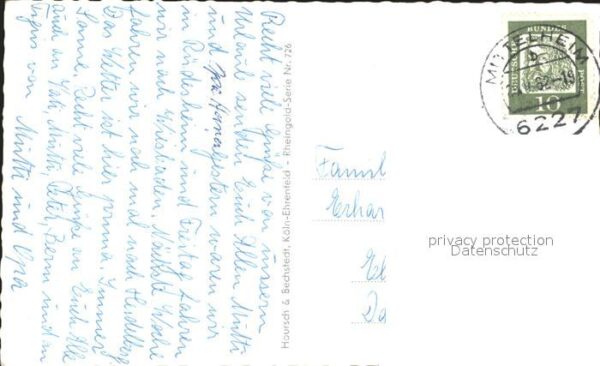 Recht viele Grüße von unserm
Urlaub senden Euch Allen Mutti
und Opa. Gestern waren wir
in Rüdesheim und Freitag fahren
wir nach Wiesbaden. Nächste Woche
fahren wir noch mal nach Heidelberg
Das Wetter ist hier prima. Immer
Sonne. Recht viele Grüße an Euch Alle
Auch an Vati, Mutti, Peter, und an
von Mutti und Opa
Hoursch & Bechstedt, Köln-Ehrenfeld - Rheingold-Serie Nr. 726
Famil
Erhar
El
Da
DEUTSCHE BUNDESPOST
10
MITTELHEIM
b
-18
6227
privacy protection
Datenschutz